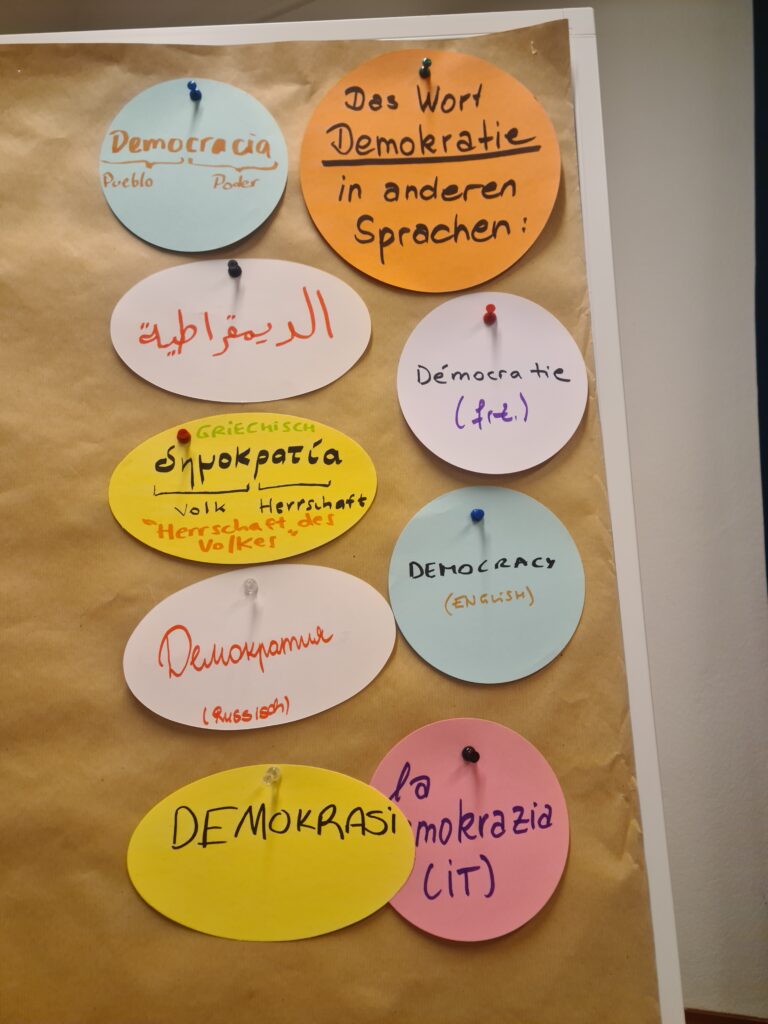 Das Wort
Demokratie
in anderen
Sprachen:
Democracia
Pueblo Poder
الديمقراطية
Démocratie
(frz.)
GRIECHISCH
δημοκρατία
Volk Herrschaft
"Herrschaft des
Volkes"
DEMOCRACY
(ENGLiSH)
Демократия
(Russisch)
DEMOKRASi
la
mokrazia
(iT)